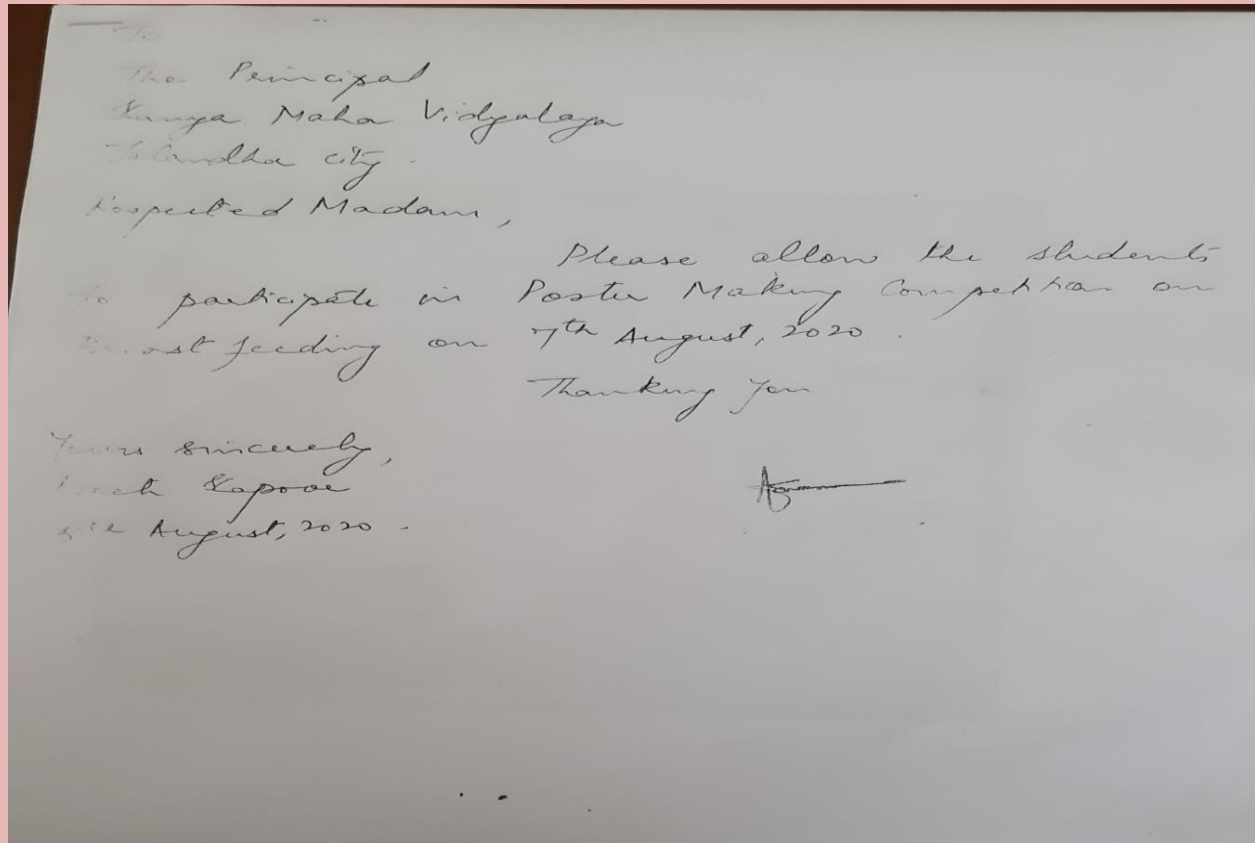 To
The Principal
Kanya Maha Vidyalaya
Jalandhar city.
Respected Madam,
Please allow the students
to participate in Poster Making Competition on
Breast feeding on 7th August, 2020.
Thanking You
Yours sincerely,
Kapoor
August, 2020.